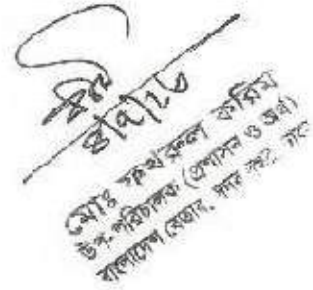 ৪/৭/২৬
মোঃ ফখরুল করিম
উপ-পরিচালক (প্রশাসন ও অর্থ)
বাংলাদেশ বেতার, সদর দপ্তর, ঢাকা